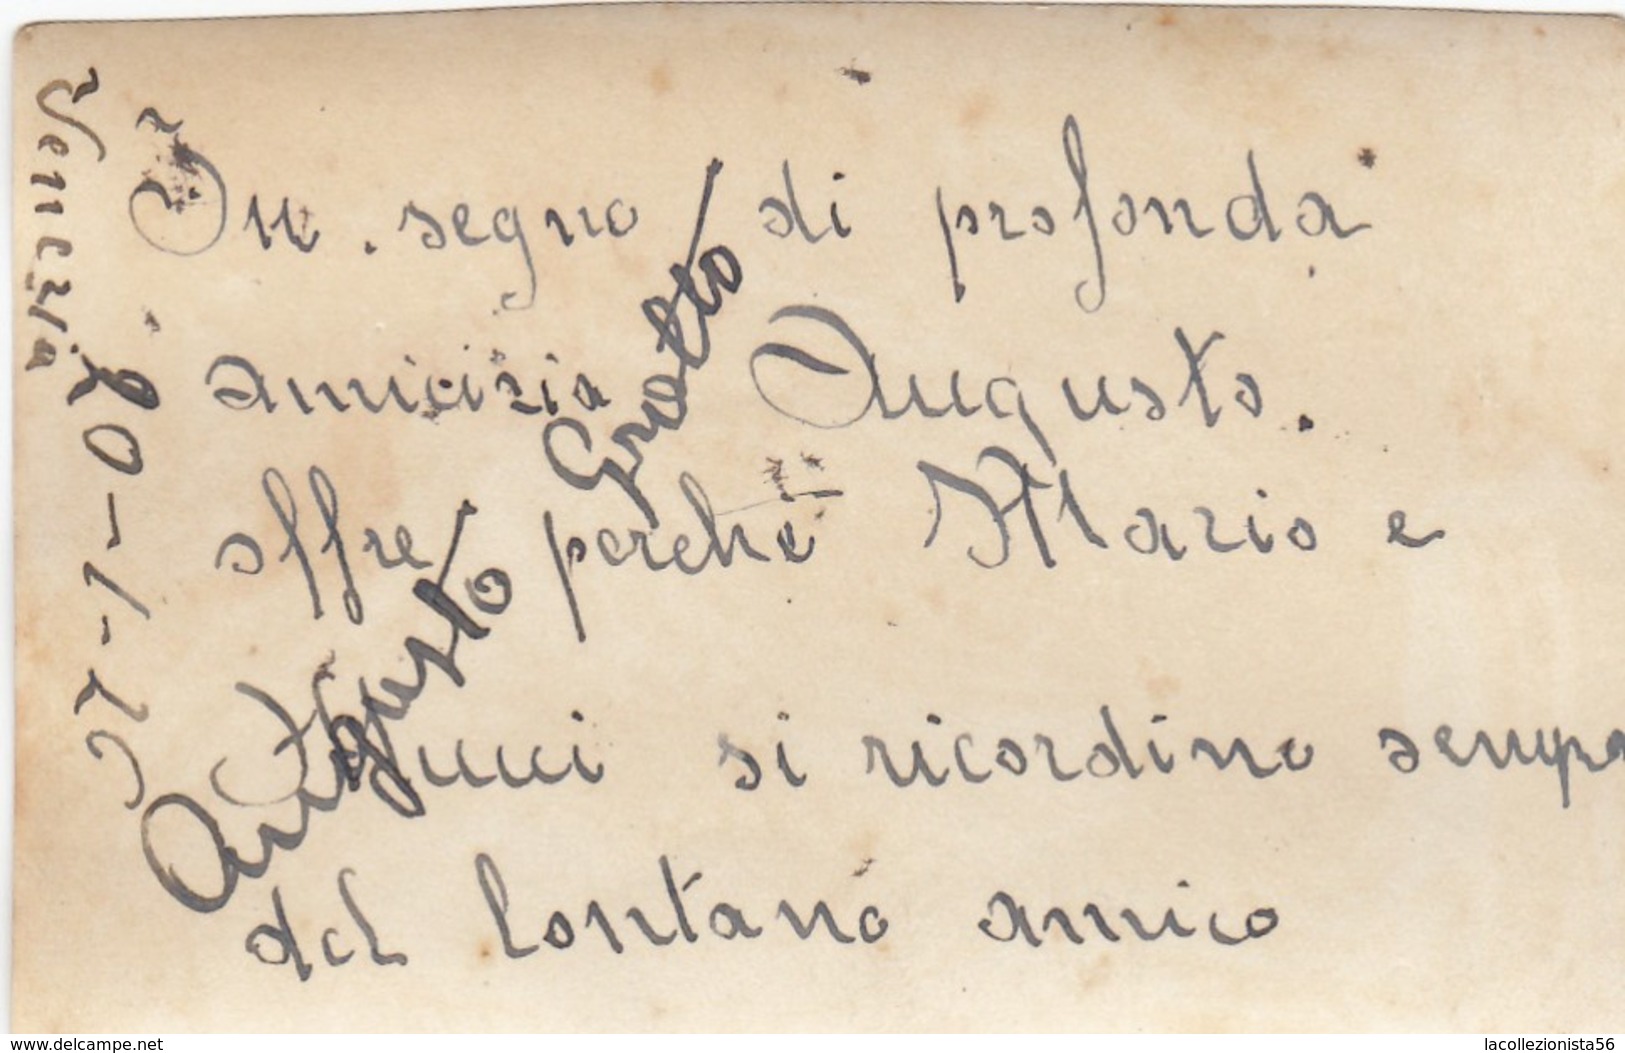 Venezia 20-1-
In segno di profonda
amicizia Augusto.
offre perchè Mario e
si ricordino sempre
del lontano amico
Augusto Grotto
www.delcampe.net
lacollezionista56